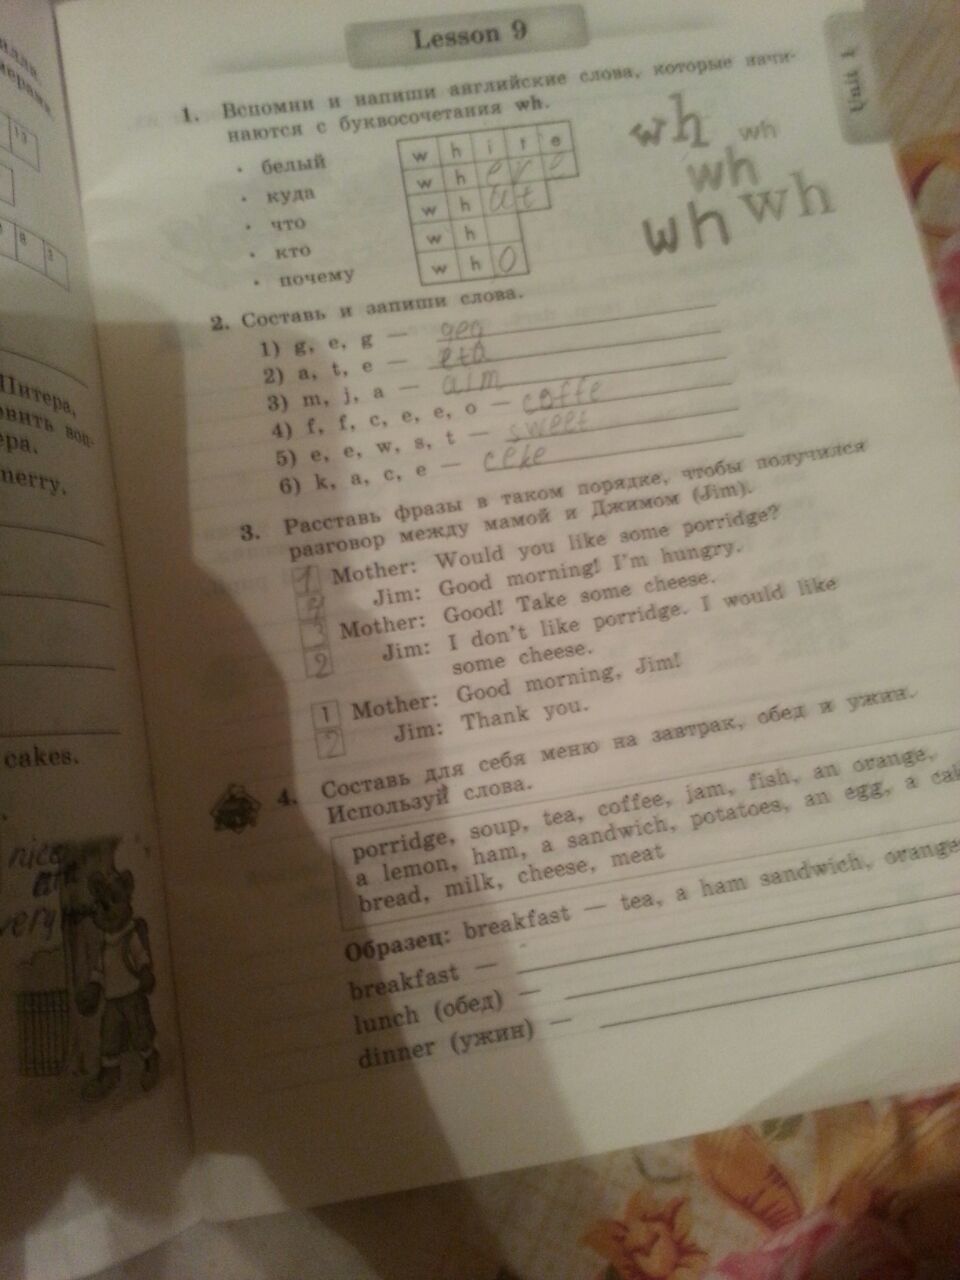 Lesson 9
Unit 1
1. Вспомни и напиши английские слова, которые начи-
наются с буквосочетания wh.
• белый w h i t e
• куда w h e r e
• что w h a t
• кто w h
• почему w h o
wh wh
wh
wh wh
2. Составь и запиши слова.
1) g, e, g — geg
2) a, t, e — eta
3) m, j, a — aim
4) f, f, c, e, e, o — coffe
5) e, e, w, s, t — sweet
6) k, a, c, e — ceke
3. Расставь фразы в таком порядке, чтобы получился
разговор между мамой и Джимом (Jim).
1 Mother: Would you like some porridge?
2 Jim: Good morning! I'm hungry.
3 Mother: Good! Take some cheese.
2 Jim: I don't like porridge. I would like
some cheese.
1 Mother: Good morning, Jim!
2 Jim: Thank you.
4. Составь для себя меню на завтрак, обед и ужин.
Используй слова.
porridge, soup, tea, coffee, jam, fish, an orange,
a lemon, ham, a sandwich, potatoes, an egg, a cak
bread, milk, cheese, meat
Образец: breakfast — tea, a ham sandwich, orange
breakfast —
lunch (обед) —
dinner (ужин) —
Питера,
вить воп-
ера.
merry,
cakes.
nice
are
very